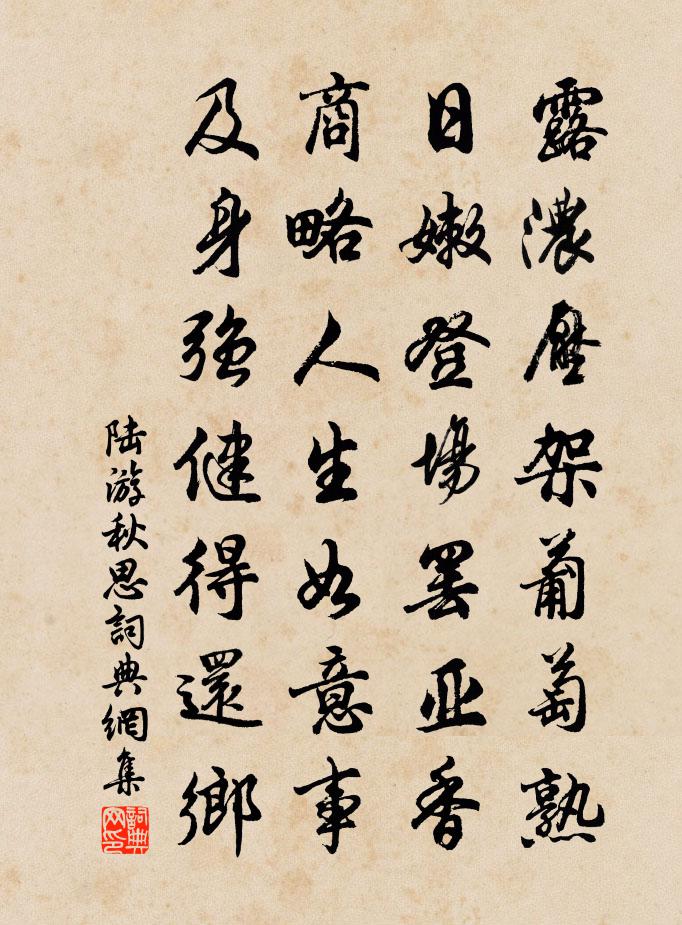 露濃壓架葡萄熟
日嫩登場罷亞香
商略人生如意事
及身強健得還鄉
陆游秋思詞典網集
詞典网印